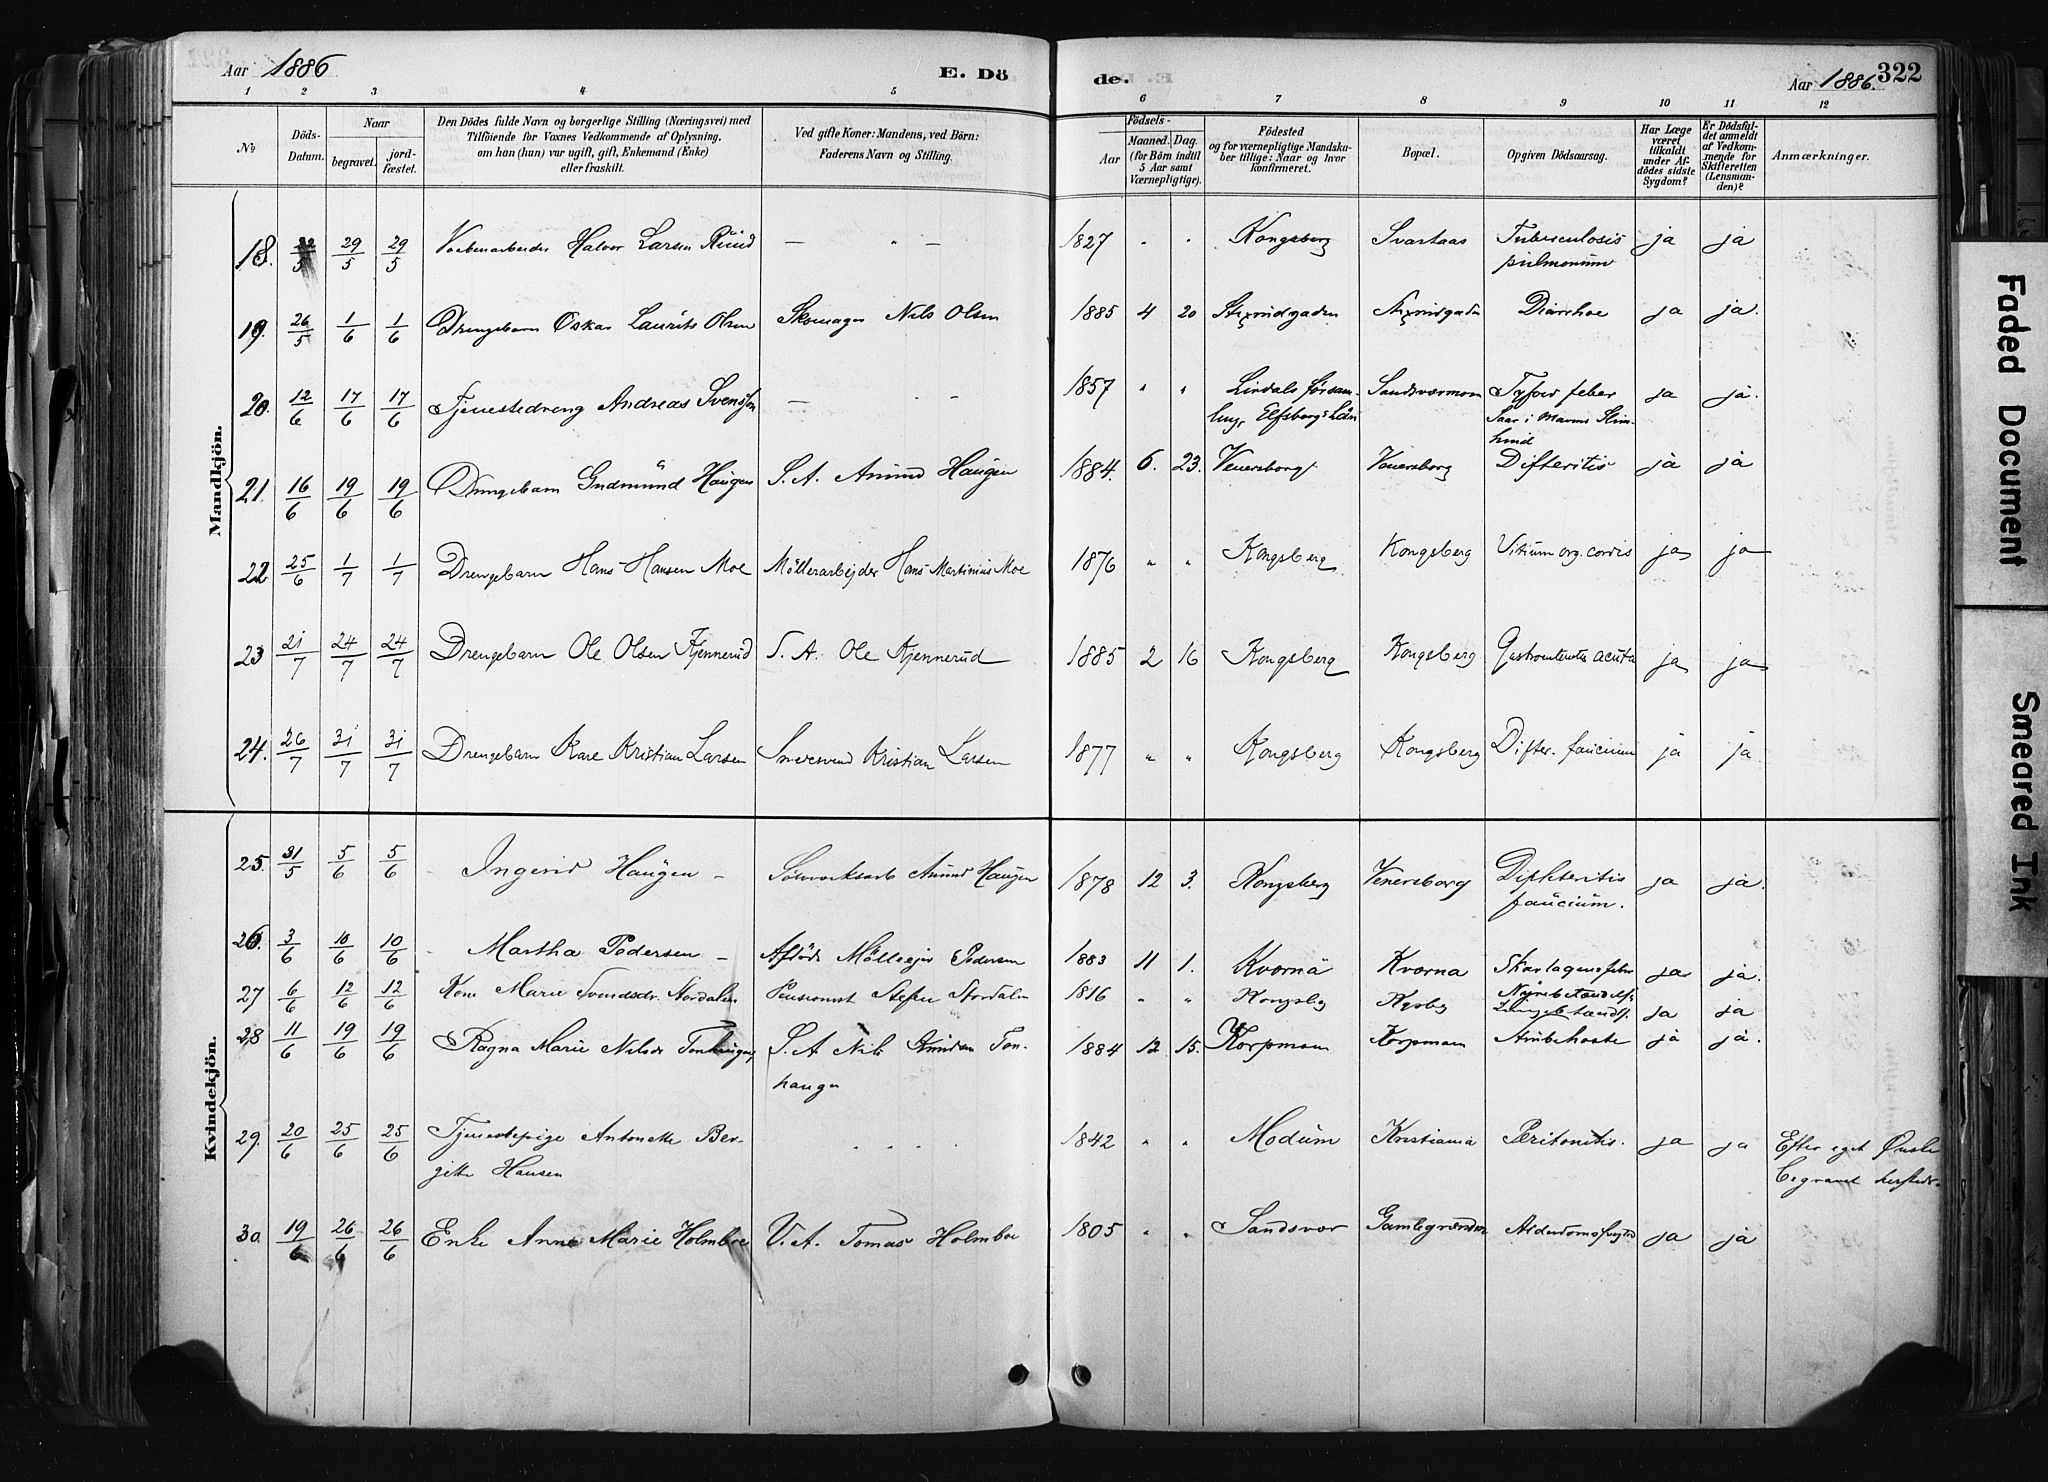 Aar 1886 E. Dö
de. Aar 1886. 322
1 2 3 4 5 6 7 8 9 10 11 12
No
Döds-Datum.
Naar
begravet.
jord-fæstet.
Den Dödes fulde Navn og borgerlige Stilling (Næringsvei) med
Tilföiende for Voxnes Vedkommende af Oplysning,
om han (hun) var ugift, gift, Enkemand (Enke)
eller fraskilt.
Ved gifte Koner: Mandens, ved Börn:
Faderens Navn og Stilling.
Födsels-
Aar
Maaned. Dag.
(for Börn indtil
5 Aar samt
Værnepligtige).
Födested
og for værnepligtige Mandska-
ber tillige: Naar og hvor
konfirmeret.
Bopæl.
Opgiven Dödsaarsag.
Har Læge
været
tilkaldt
under Af-
dödes sidste
Sygdom?
Er Dödsfal-
det anmeldt
af Vedkom-
mende for
Skifteretten
(Lensman-
den)?
Anmærkninger.
Mandkjön.
18. 22/5 29/5 29/5 Halvor Larsen Ruud — " — 1827 " " Kongsberg Svartaas Tuberculosis ja ja
pulmonum
19. 26/5 1/6 1/6 Drengebarn Oskar Laurits Olsen Skomager Nils Olsen 1885 4 20 Diarrhoe ja ja.
20. 12/6 17/6 17/6 Tjenestedreng Andreas Svensson — " — 1857 " " Lindals försam- Sandsværmoen Tyfoid feber ja ja.
ling, Elfsborgs Län Saar i Mavens Slim-
hind
21. 16/6 19/6 19/6 Drengebarn Gudmund Haugen S. A. Amund Haugen 1884. 6. 23. Venersborg Venersborg Difteritis ja ja
22 25/6 1/7 1/7 Drengebarn Hans Hansen Moe Möllerarbejder Hans Martinius Moe 1876 " " Kongsberg Kongsberg Vitium org. cordis ja ja
23 21/7 24/7 24/7 Drengebarn Ole Olsen Kjennerud S. A. Ole Kjennerud 1885 2 16 Kongsberg Kongsberg acuta ja ja
24. 26/7 31/7 31/7 Drengebarn Kare Kristian Larsen Smedesvend Kristian Larsen 1877 " " Kongsberg Kongsberg Difter. faucium ja ja
Kvindekjön.
25. 31/5 5/6 5/6 Ingerid Haugen — Sölvverksarb Amund Haugen 1878 12 3. Kongsberg Venersborg Diphteritis ja ja.
faucium.
26. 3/6 10/6 10/6 Martha Pedersen — Afdöde Mölleejer Pedersen 1883 11 1. Kvernä Kverna Skarlagensfeber ja ja.
27 6/6 12/6 12/6 Kone Marie Svendsdr. Stordalen Pensionist Steffen Stordalen 1816 " " Kongsbg Kgsbg ja ja
28 11/6 19/6 19/6 Ragna Marie Nilsdr S. A Nils Amundsen Ton- 1884 12 15. Korpmoen Korpmoen ja ja.
haugen
29. 20/6 25/6 25/6 Tjenestepige Antonette Ber- " " 1842 " " Modum Kristiania Peritonitis. ja ja Efter eget Önske
gitte Hansen begravet herfsteds.
30. 19/6 26/6 26/6 Enke Anne Marie Holmboe V. A. Tomas Holmboe 1805 " " Sandsvær Gamlegrændsen ja ja
Faded Document
Smeared Ink